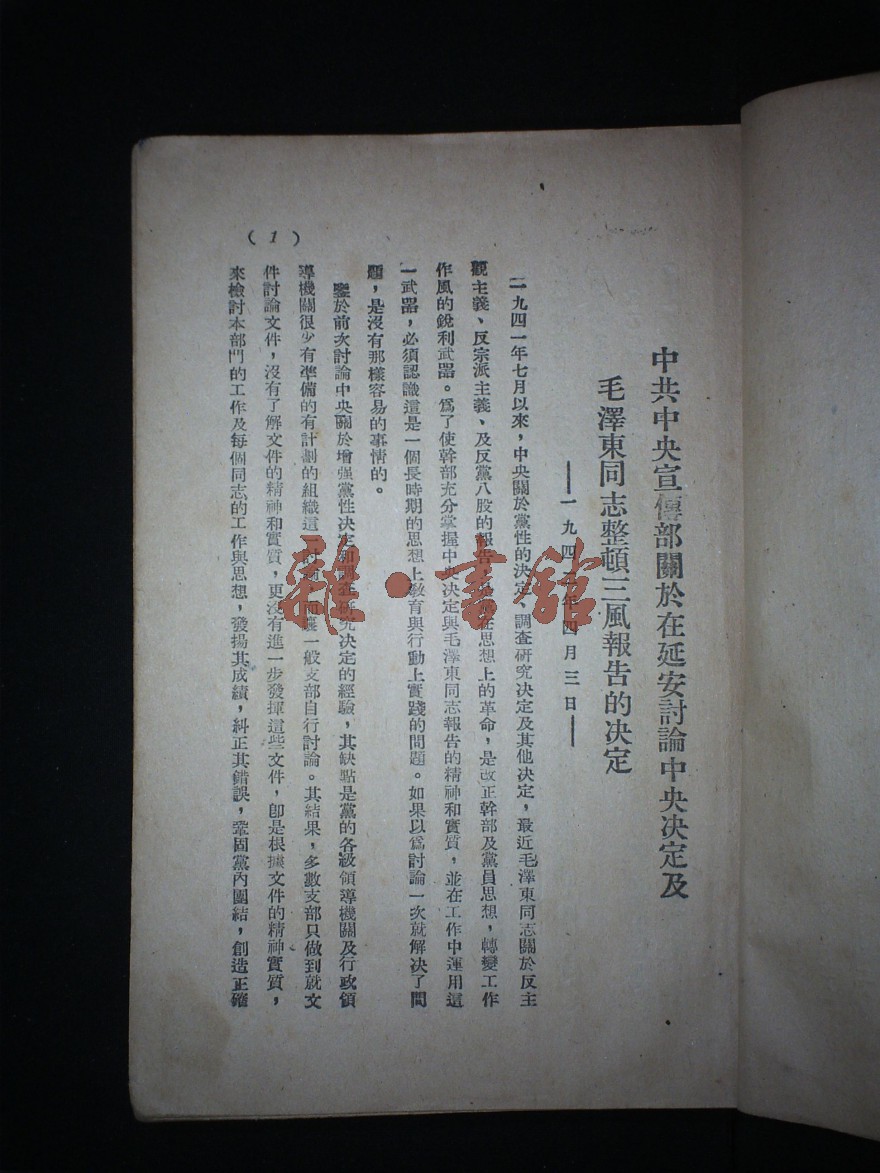 中共中央宣傳部關於在延安討論中央決定及
毛澤東同志整頓三風報告的決定
——一九四二年四月三日——
一九四一年七月以來，中央關於黨性的決定、調查研究決定及其他決定，最近毛澤東同志關於反主
觀主義、反宗派主義、及反黨八股的報告，在思想上的革命，是改正幹部及黨員思想，轉變工作
作風的銳利武器。爲了使幹部充分掌握中央決定與毛澤東同志報告的精神和實質，並在工作中運用這
一武器，必須認識這是一個長時期的思想上教育與行動上實踐的問題。如果以爲討論一次就解決了問
題，是沒有那樣容易的事情的。
鑒於前次討論中央關於增强黨性決定和調查研究決定的經驗，其缺點是黨的各級領導機關及行政領
導機關很少有準備的有計劃的組織這一討論，而讓一般支部自行討論。其結果，多數支部只做到就文
件討論文件，沒有了解文件的精神和實質，更沒有進一步發揮這些文件，卽是根據文件的精神實質，
來檢討本部門的工作及每個同志的工作與思想，發揚其成績，糾正其錯誤，鞏固黨內團結，創造正確
（1）
雜·書館